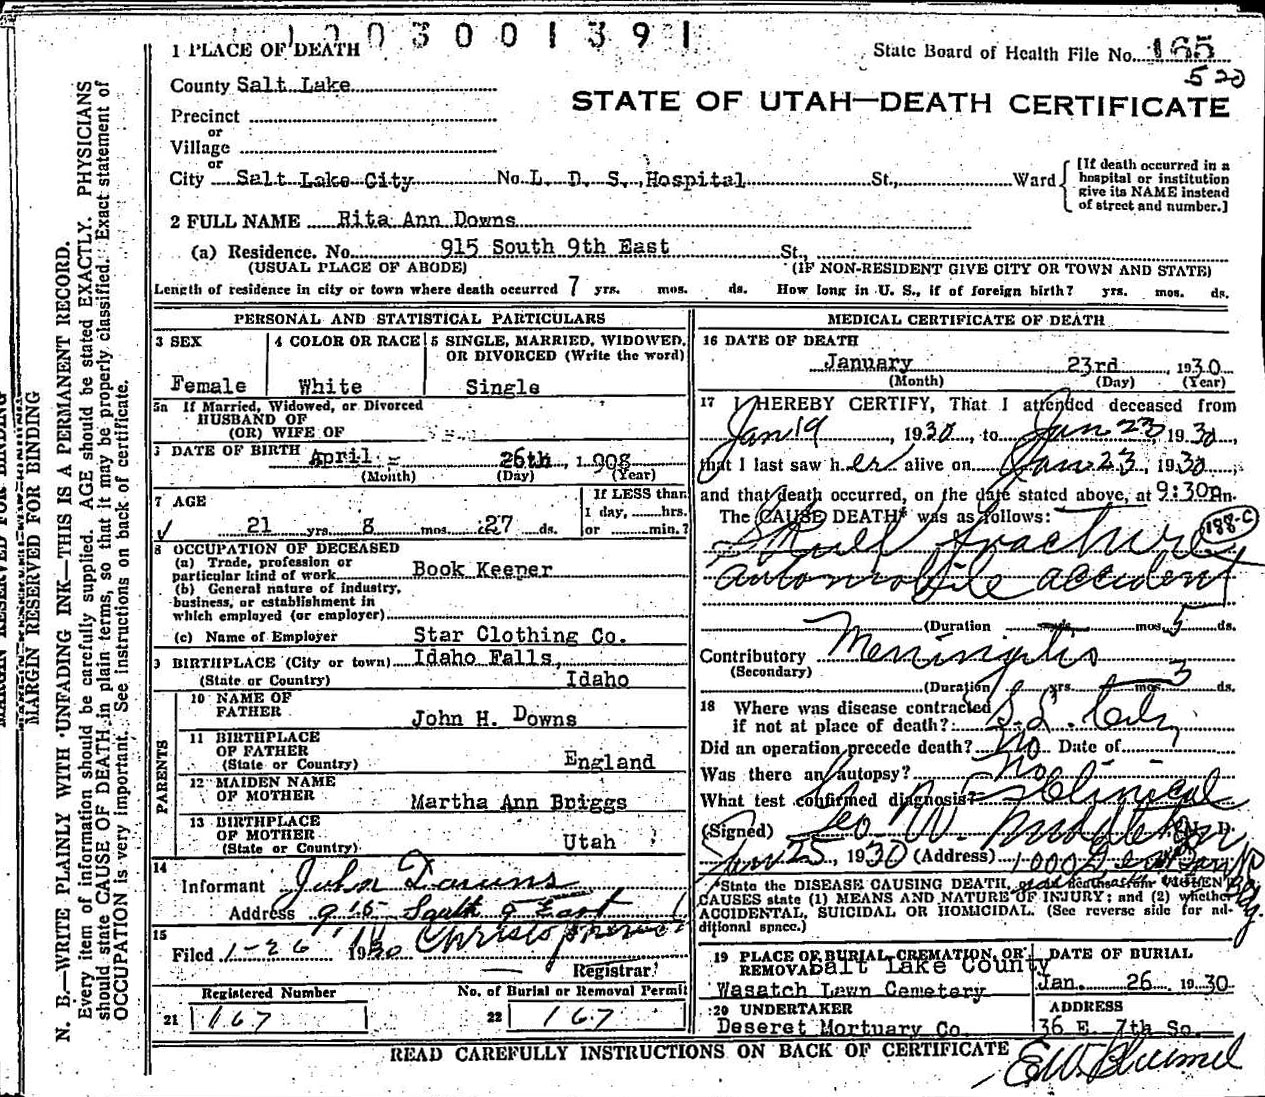 1003001391
1 PLACE OF DEATH
State Board of Health File No. 165
520
County Salt Lake
STATE OF UTAH—DEATH CERTIFICATE
Precinct
or
Village
or
City Salt Lake City No. L. D. S. Hospital St., Ward
[If death occurred in a
hospital or institution
give its NAME instead
of street and number.]
2 FULL NAME Rita Ann Downs
(a) Residence. No. 915 South 9th East St.,
(USUAL PLACE OF ABODE) (IF NON-RESIDENT GIVE CITY OR TOWN AND STATE)
Length of residence in city or town where death occurred 7 yrs. mos. ds. How long in U. S., if of foreign birth? yrs. mos. ds.
PERSONAL AND STATISTICAL PARTICULARS
3 SEX
Female
4 COLOR OR RACE
White
5 SINGLE, MARRIED, WIDOWED,
OR DIVORCED (Write the word)
Single
5a If Married, Widowed, or Divorced
HUSBAND OF
(OR) WIFE OF
DATE OF BIRTH April 26th, 1908
(Month) (Day) (Year)
7 AGE
21 yrs. 8 mos. 27 ds.
If LESS than
1 day, hrs.
or min.?
8 OCCUPATION OF DECEASED
(a) Trade, profession or
particular kind of work Book Keeper
(b) General nature of industry,
business, or establishment in
which employed (or employer)
(c) Name of Employer Star Clothing Co.
9 BIRTHPLACE (City or town) Idaho Falls,
(State or Country) Idaho
PARENTS
10 NAME OF
FATHER John H. Downs
11 BIRTHPLACE
OF FATHER
(State or Country) England
12 MAIDEN NAME
OF MOTHER Martha Ann Briggs
13 BIRTHPLACE
OF MOTHER
(State or Country) Utah
14
Informant John Downs
Address 915 South 9 East
15
Filed 1-26 1930
Registrar
Registered Number
21 167
No. of Burial or Removal Permit
22 167
MEDICAL CERTIFICATE OF DEATH
16 DATE OF DEATH
January 23rd, 1930
(Month) (Day) (Year)
17 I HEREBY CERTIFY, That I attended deceased from
Jan 19, 1930, to Jan 23, 1930,
that I last saw her alive on Jan 23, 1930
and that death occurred, on the date stated above, at 9:30 m.
The CAUSE DEATH* was as follows:
188-c
Skull fracture
automobile accident
(Duration yrs. mos. 5 ds.
Contributory Meningitis
(Secondary)
(Duration yrs. mos. 3 ds.
18 Where was disease contracted
if not at place of death? S. L. City
Did an operation precede death? No Date of
Was there an autopsy? No
What test confirmed diagnosis? Clinical
(Signed) Geo W. Middleton M. D.
Jan 25, 1930 (Address) 1000
*State the DISEASE CAUSING DEATH, or in deaths from VIOLENT
CAUSES state (1) MEANS AND NATURE OF INJURY; and (2) whether
ACCIDENTAL, SUICIDAL OR HOMICIDAL. (See reverse side for ad-
ditional space.)
19 PLACE OF BURIAL, CREMATION, OR
REMOVAL Salt Lake County
Wasatch Lawn Cemetery
DATE OF BURIAL
Jan. 26 1930
20 UNDERTAKER
Deseret Mortuary Co.
ADDRESS
36 E. 7th So.
READ CAREFULLY INSTRUCTIONS ON BACK OF CERTIFICATE
MARGIN RESERVED FOR BINDING
MARGIN RESERVED FOR BINDING
N. B.—WRITE PLAINLY WITH UNFADING INK—THIS IS A PERMANENT RECORD.
Every item of information should be carefully supplied. AGE should be stated EXACTLY. PHYSICIANS
should state CAUSE OF DEATH in plain terms, so that it may be properly classified. Exact statement of
OCCUPATION is very important. See instructions on back of certificate.